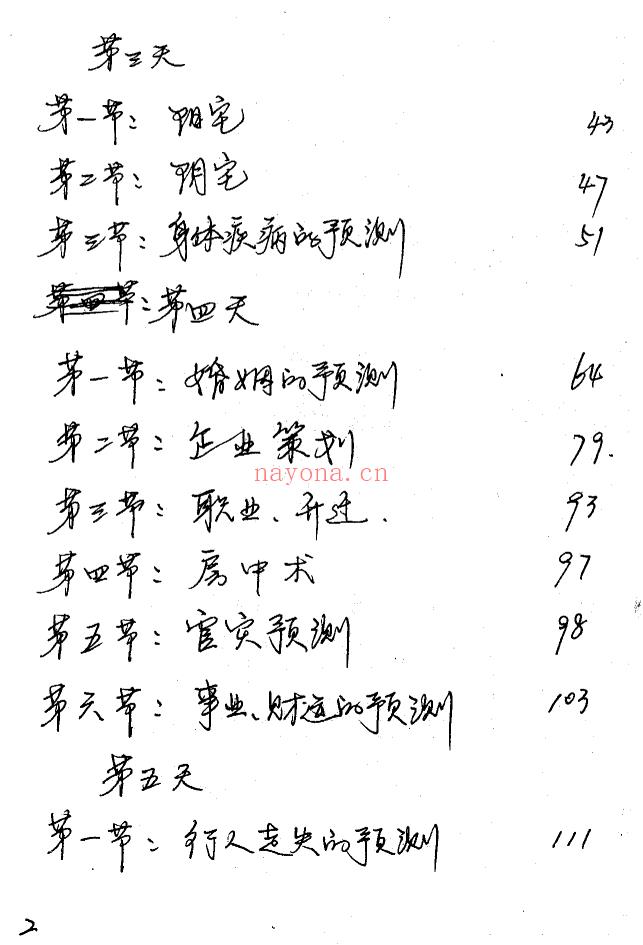 第三天
第一节：阳宅 43
第二节：阴宅 47
第三节：身体疾病的预测 51
第四节：第四天
第一节：婚姻的预测 64
第二节：企业策划 79.
nayona.cn
第三节：职业、升迁. 93
第四节：房中术 97
第五节：官灾预测 98
第六节：事业、财运的预测 103
第五天
第一节：行人走失的预测 111
2